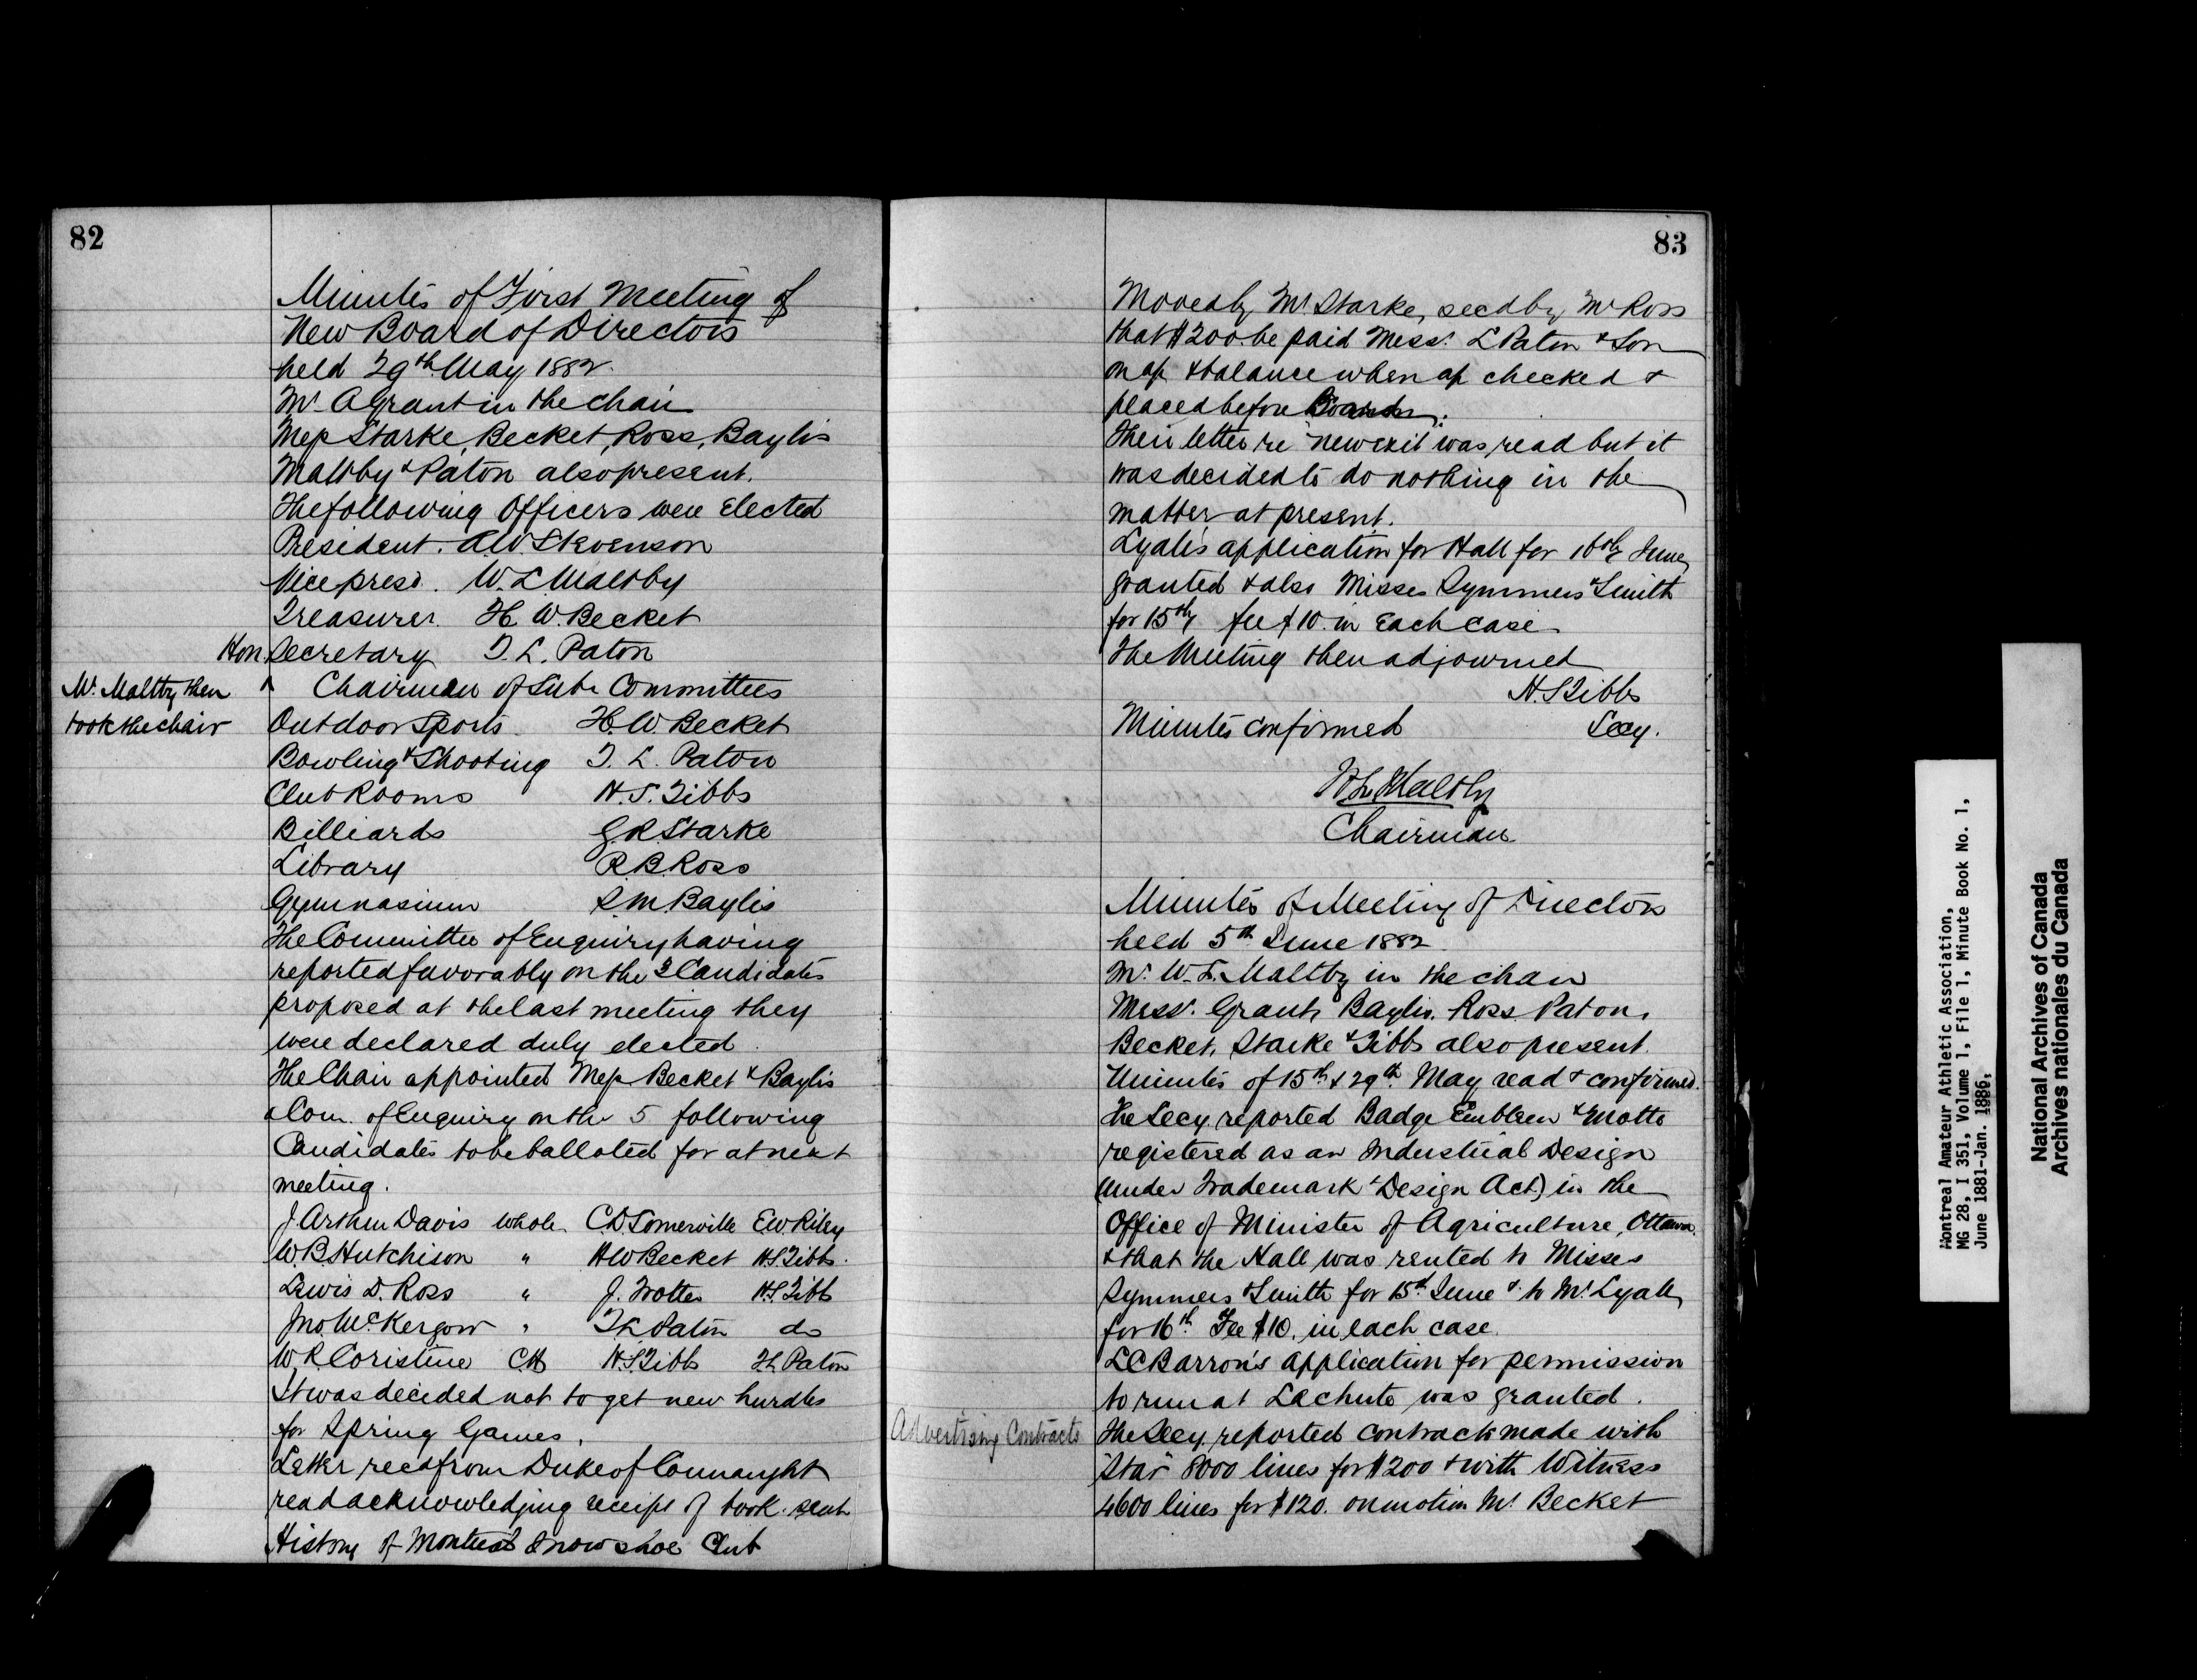 82
Minutes of First Meeting of
New Board of Directors
held 29th May 1882.
Mr A Grant in the chair
Mess Starke, Becket, Ross, Baylis
Maltby & Paton also present.
The following Officers were Elected
President. A.W. Stevenson
Vice presd. W. L. Maltby
Treasurer. H. W. Becket
Hon. Secretary T. L. Paton
Mr. Maltby then
took the chair
Chairmen of Sub Committees
Outdoor Sports H. W. Becket
Bowling & Shooting T. L. Paton
Club Rooms H. S. Tibbs
Billiards G. R. Starke
Library R. B. Ross
Gymnasium S. M. Baylis
The Committee of Enquiry having
reported favorably on the Candidates
proposed at the last meeting they
were declared duly elected.
The Chair appointed Mess Becket & Baylis
a Com. of Enquiry on the 5 following
Candidates to be balloted for at next
meeting.
J. Arthur Davis Whole C. D. Somerville E. W. Riley
W. B. Hutchison " H W Becket H. S. Tibbs.
Lewis D. Ross " J. Trotter H. S. Tibbs
Jno. McKergow " T. L. Paton do
W. R. Coristine H. S. Tibbs T. L. Paton
It was decided not to get new hurdles
for Spring Games.
Letter recd from Duke of Connaught
read acknowledging receipt of book sent
History of Montreal Snow shoe Club
83
Moved by Mr Starke, secd by Mr Ross
that $200. be paid Mess. L Paton & Son
on a/c & balance when a/c checked &
placed before Board.
Their letter re new exit was read but it
was decided to do nothing in the
matter at present.
Lyall's application for Hall for 16th June
granted & also Misses Symmers & Smith
for 15th fee $10. in Each case
The Meeting then adjourned
H. S. Tibbs
Secy.
Minutes confirmed
W L Maltby
Chairman.
Minutes of Meeting of Directors
held 5th June 1882.
Mr. W. L. Maltby in the chair
Mess. Grant, Baylis. Ross. Paton.
Becket. Starke & Tibbs also present.
Minutes of 15th & 29th May read & confirmed.
The Secy. reported Badge Emblem & Motto
registered as an Industrial Design
(under Trademark & Design Act) in the
Office of Minister of Agriculture, Ottawa.
& that the Hall was rented to Misses
Symmers & Smith for 15th June & to Mr. Lyall
for 16th Fee $10. in each case.
L C Barron's application for permission
to run at Lachute was granted.
Advertising Contracts
The Secy. reported contracts made with
"Star" 8000 lines for $200 & with Witness
4600 lines for $120. on motion Mr Becket
Montreal Amateur Athletic Association,
MG 28, I 351, Volume 1, File 1, Minute Book No. 1,
June 1881-Jan. 1886,
National Archives of Canada
Archives nationales du Canada